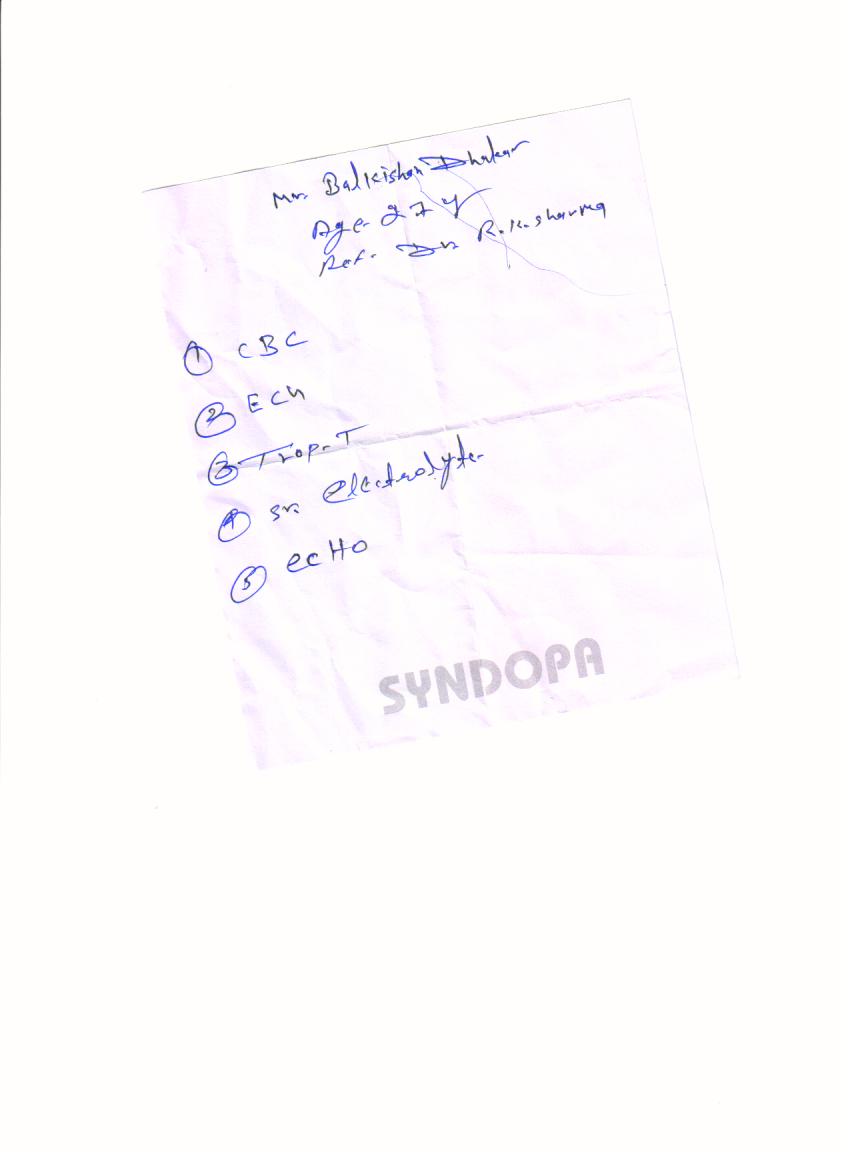 Mr. Balkishan Dhakar
Age. 27 y
Ref. Dr. R.K. sharma
① CBC
② ECG
③ Trop. T
④ Sr. Electrolyte
⑤ ECHO
SYNDOPA